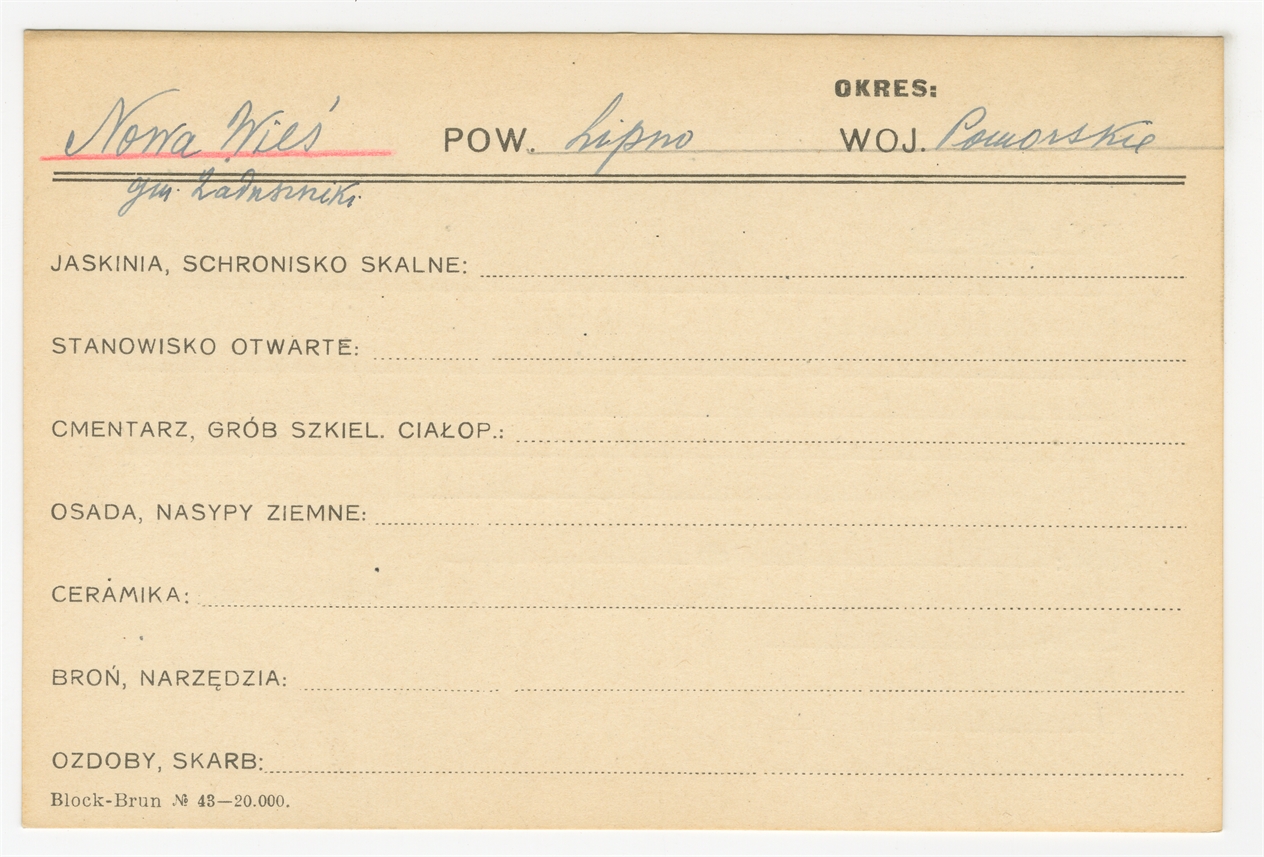 OKRES:
Nowa Wieś POW. Lipno WOJ. Pomorskie
gm. Zaduszniki
JASKINIA, SCHRONISKO SKALNE:
STANOWISKO OTWARTE:
CMENTARZ, GRÓB SZKIEL. CIAŁOP.:
OSADA, NASYPY ZIEMNE:
CERAMIKA:
BROŃ, NARZĘDZIA:
OZDOBY, SKARB:
Block-Brun № 43—20.000.